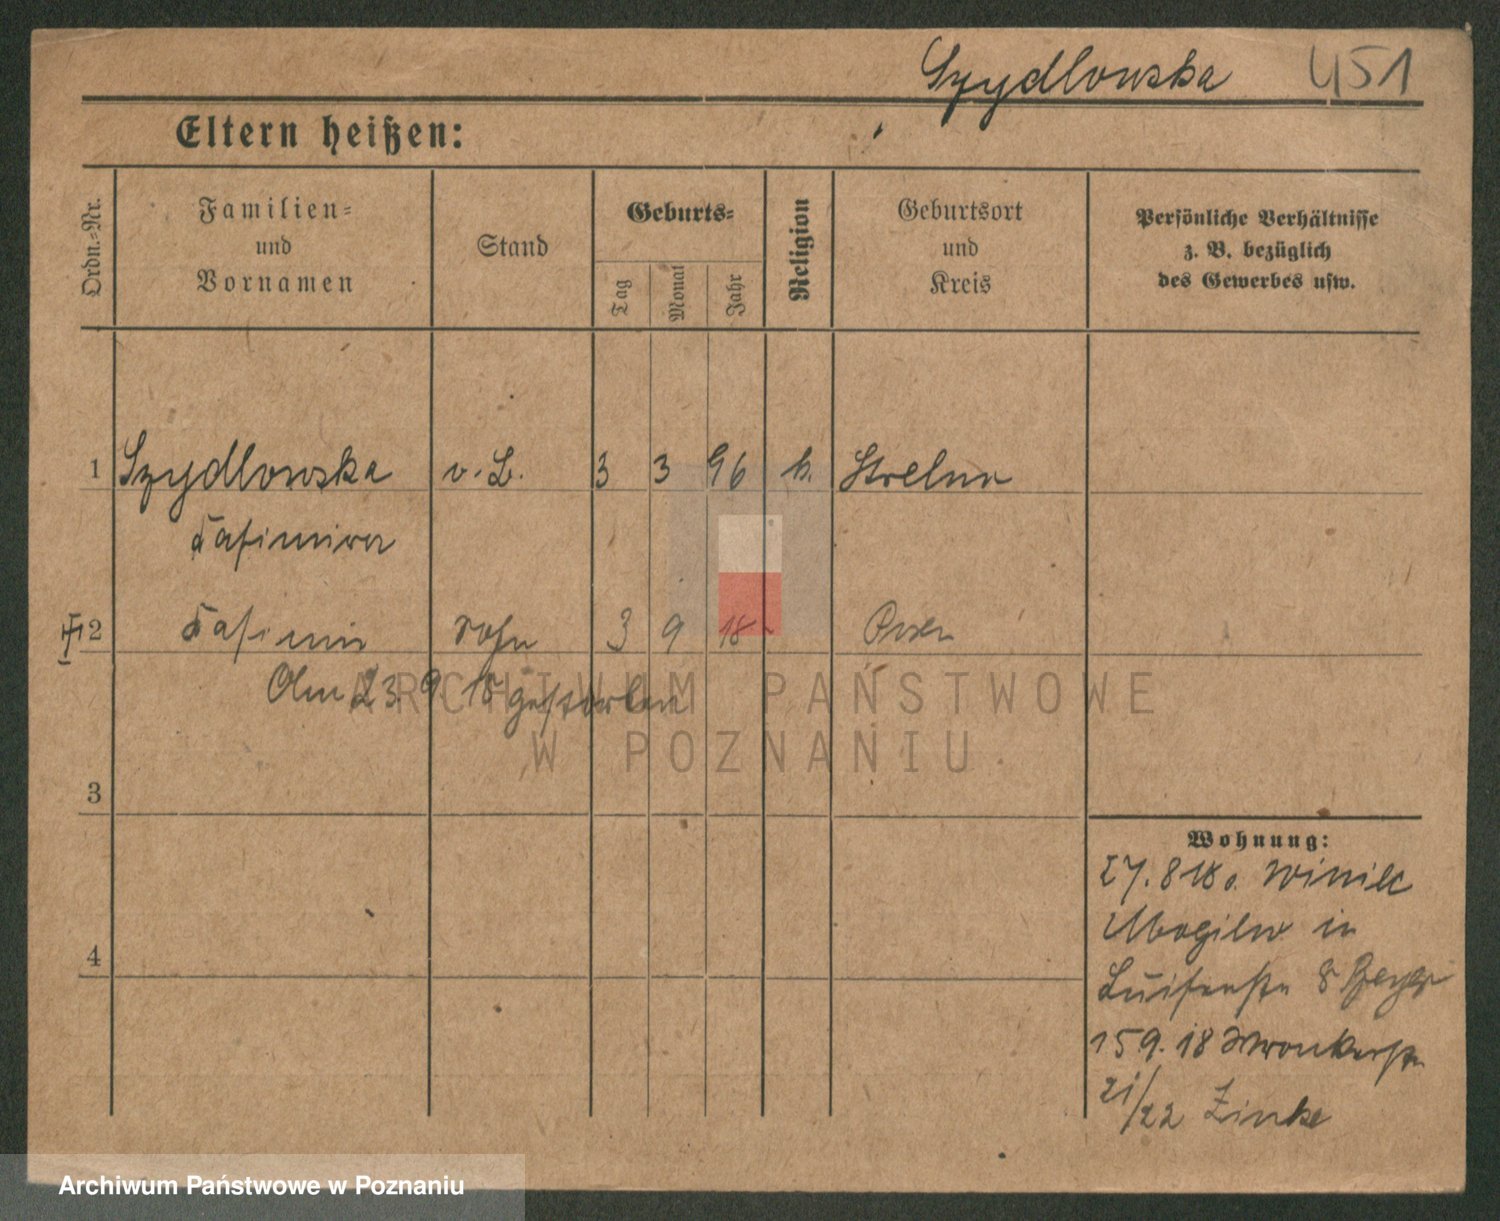 Szydlowska 451
Eltern heißen:
Ordn.-Nr.
Familien-
und
Vornamen
Stand
Geburts-
Tag
Monat
Jahr
Religion
Geburtsort
und
Kreis
Persönliche Verhältnisse
z. B. bezüglich
des Gewerbes usw.
1 Szydlowska v. B. 3 3 96 k. Strelno
Casimira
2 Casimir Sohn 3 9 18 Posen
Am 23 9 18 gestorben
ARCHIWUM PAŃSTWOWE
W POZNANIU
3
4
Wohnung:
27. 8 18 v.
Mogilno in
Luisenstr 8
15 9. 18 Wronkerstr
21/22 Zinke
Archiwum Państwowe w Poznaniu